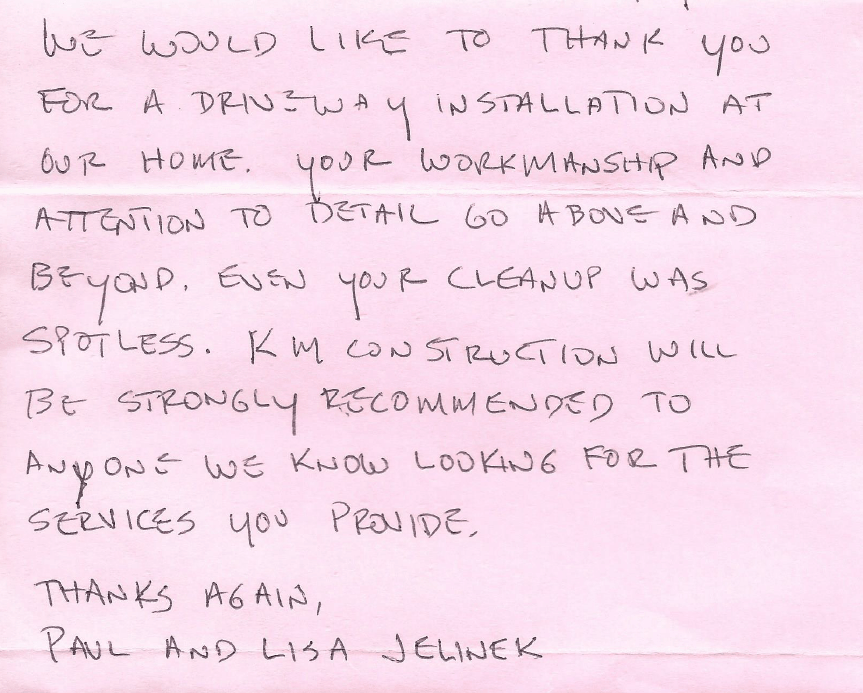 WE WOULD LIKE TO THANK YOU
FOR A DRIVEWAY INSTALLATION AT
OUR HOME. YOUR WORKMANSHIP AND
ATTENTION TO DETAIL GO ABOVE AND
BEYOND. EVEN YOUR CLEANUP WAS
SPOTLESS. KM CONSTRUCTION WILL
BE STRONGLY RECOMMENDED TO
ANYONE WE KNOW LOOKING FOR THE
SERVICES YOU PROVIDE.
THANKS AGAIN,
PAUL AND LISA JELINEK